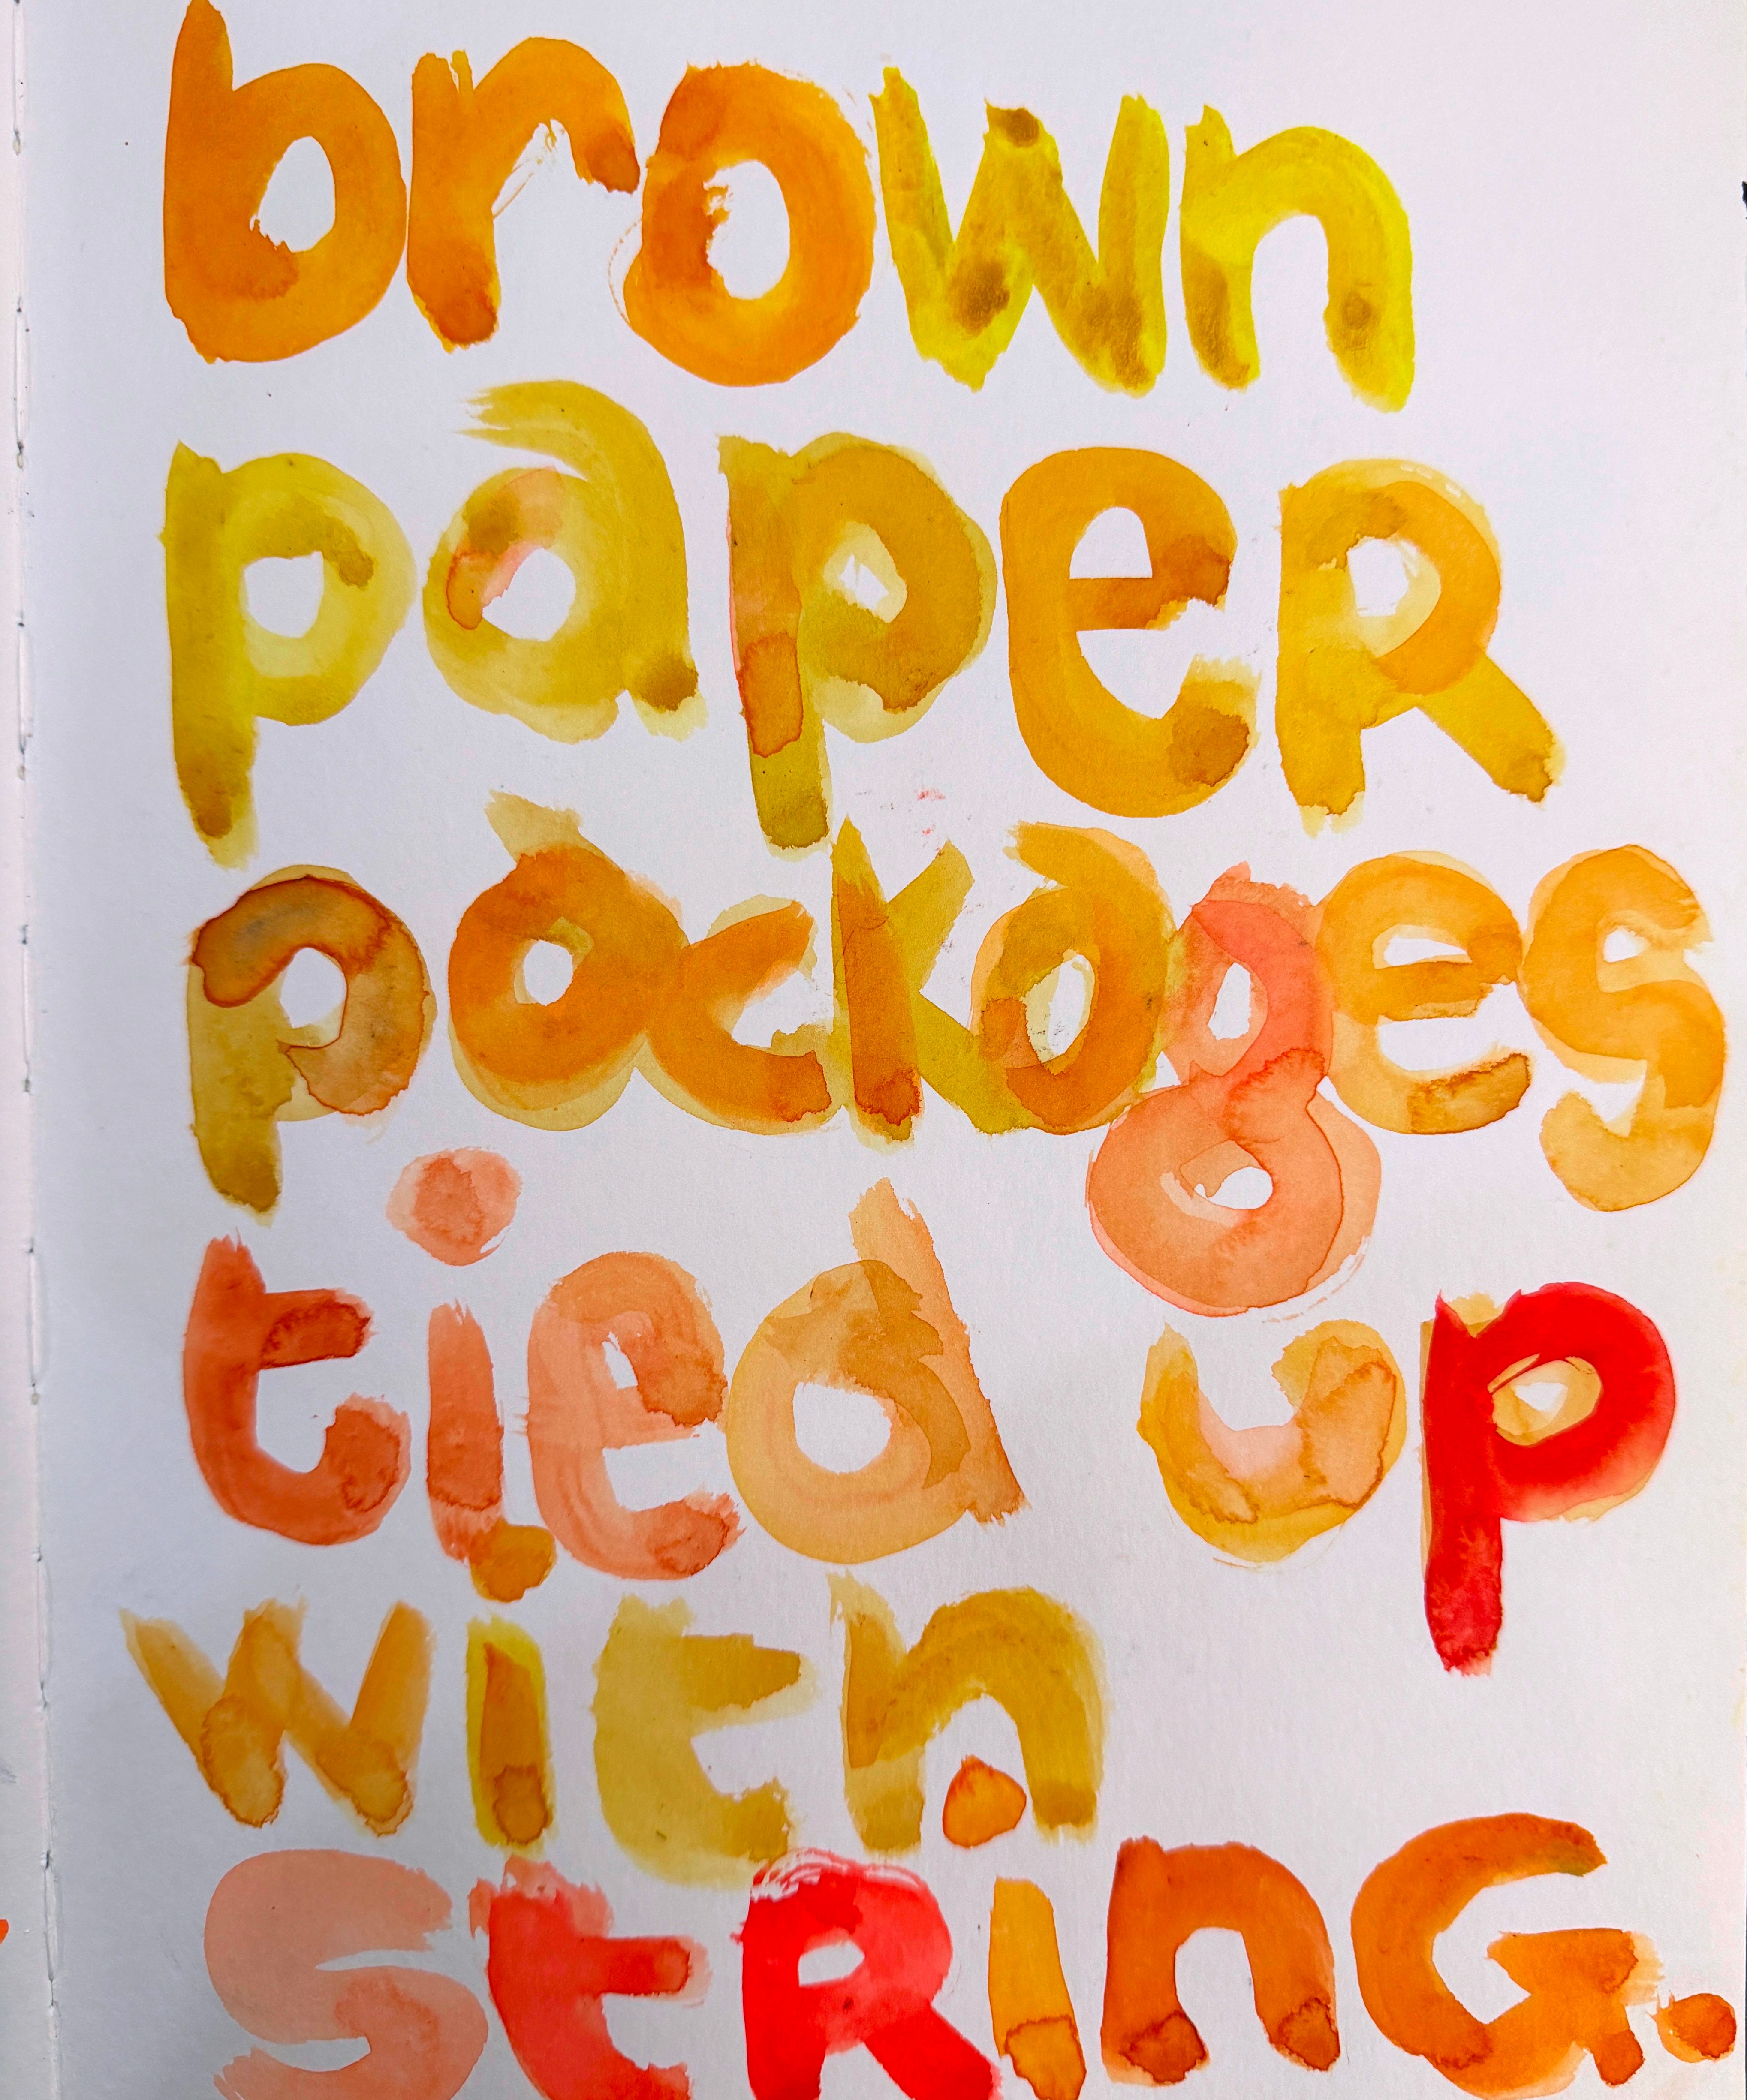 brown
papeR
packages
tied up
with
stRinG.